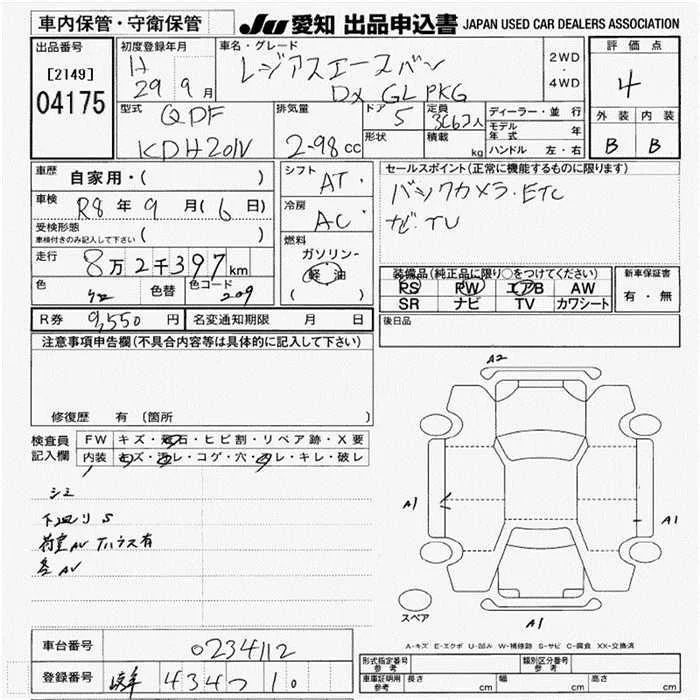 車内保管・守衛保管
JU 愛知 出品申込書 JAPAN USED CAR DEALERS ASSOCIATION
出品番号
[2149]
04175
初度登録年月
H 29年9月
車名・グレード
レジアスエースバン
DX GL PKG
2WD
・
4WD
評価点
4
外装 内装
B B
型式
QDF
KDH201V
排気量
2-98cc
ドア
5
形状
定員
3(6)人
積載
kg
ディーラー・並行
モデル年式 年
ハンドル 左・右
車歴 自家用・( )
車検 R8年9月(6日)
受検形態
車検付きのみ記入して下さい ( )
走行 8万2千397km
色 色替 色コード 209
シフト AT
冷房 AC
燃料
ガソリン
軽油
( )
セールスポイント(正常に機能するものに限ります)
バックカメラ・ETC
ナビ・TV
装備品(純正品に限り○をつけてください)
PS PW エアB AW
SR ナビ TV カワシート
新車保証書
有・無
R券 9,550円 名変通知期限 月 日
後日品
注意事項申告欄(不具合内容等は具体的に記入して下さい)
修復歴 有 (箇所 )
検査員
記入欄
FW キズ・飛石・ヒビ割・リペア跡・X要
内装 キズ・汚レ・コゲ・穴・スレ・キレ・破レ
シミ
下廻リ S
荷室AV アハラス有
各AV
A2
A1
A1
A1
スペア
A-キズ E-エクボ U-凹み W-補修跡 S-サビ C-腐食 XX-交換済
車台番号 0234112
登録番号 岐阜 434つ10
形式指定番号
参考
類別区分番号
参考
車庫証明欄
参考
長さ cm 幅 cm 高さ cm